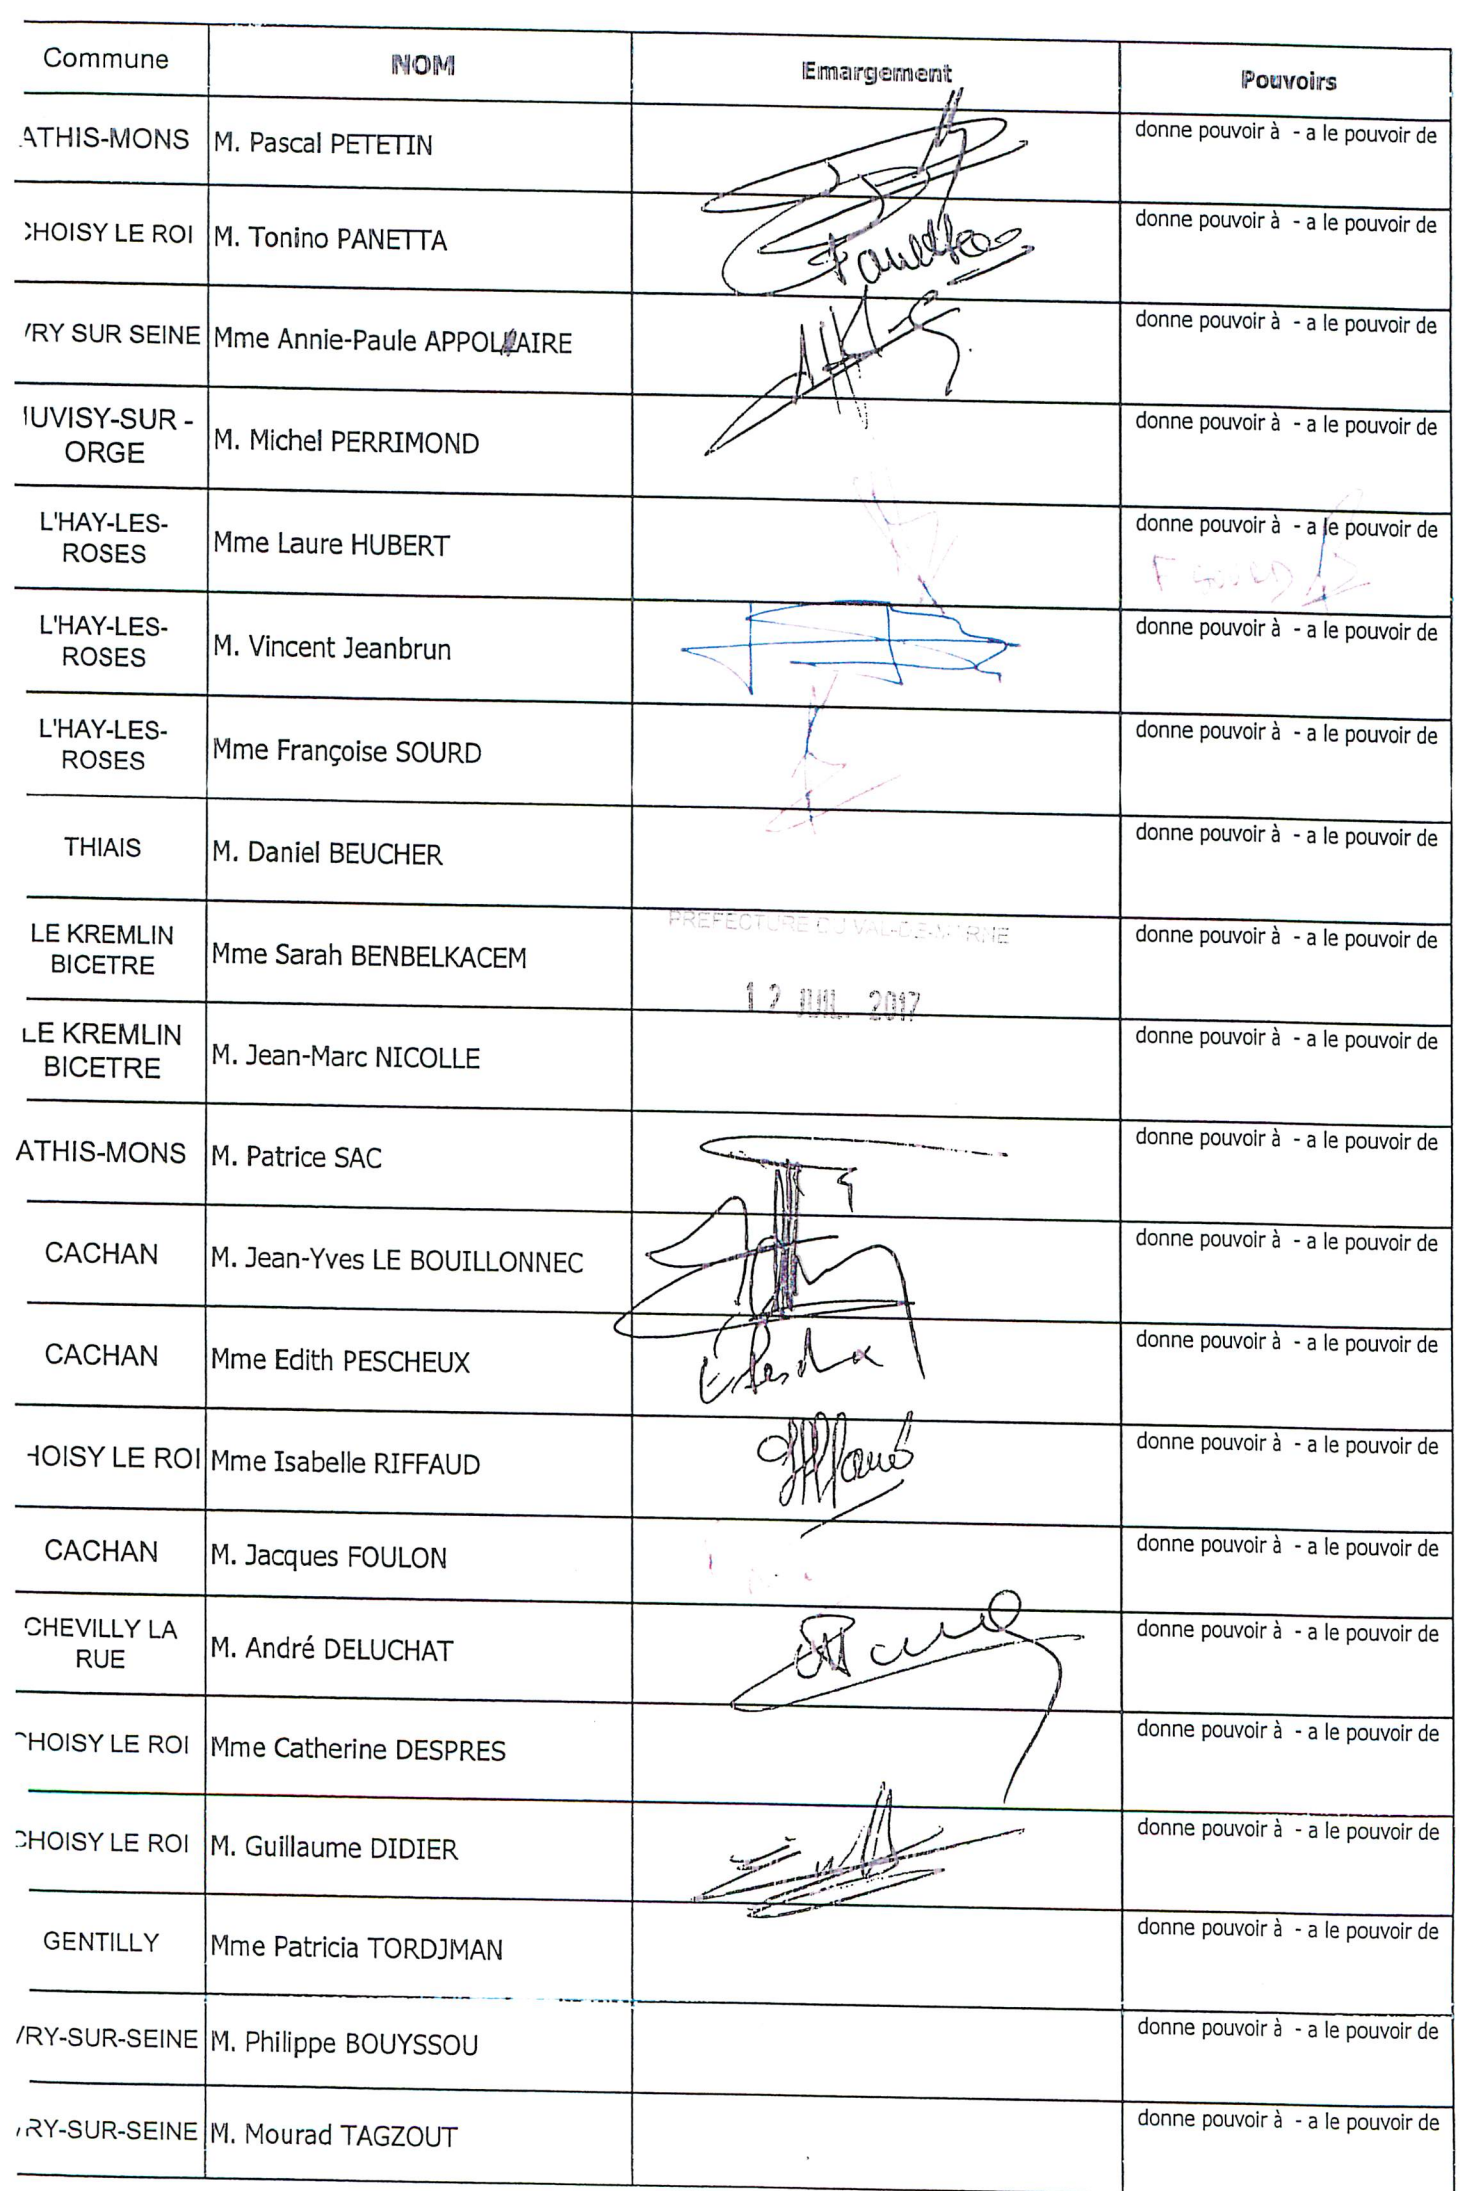 Commune NOM Emargement Pouvoirs
ATHIS-MONS M. Pascal PETETIN donne pouvoir à - a le pouvoir de
CHOISY LE ROI M. Tonino PANETTA Panetta donne pouvoir à - a le pouvoir de
VRY SUR SEINE Mme Annie-Paule APPOLAIRE donne pouvoir à - a le pouvoir de
UVISY-SUR -
ORGE
M. Michel PERRIMOND donne pouvoir à - a le pouvoir de
L'HAY-LES-
ROSES
Mme Laure HUBERT donne pouvoir à - a le pouvoir de
F SOURD
L'HAY-LES-
ROSES
M. Vincent Jeanbrun donne pouvoir à - a le pouvoir de
L'HAY-LES-
ROSES
Mme Françoise SOURD donne pouvoir à - a le pouvoir de
THIAIS M. Daniel BEUCHER donne pouvoir à - a le pouvoir de
LE KREMLIN
BICETRE
Mme Sarah BENBELKACEM PREFECTURE DU VAL-DE-MARNE donne pouvoir à - a le pouvoir de
12 JUIL. 2017
LE KREMLIN
BICETRE
M. Jean-Marc NICOLLE donne pouvoir à - a le pouvoir de
ATHIS-MONS M. Patrice SAC donne pouvoir à - a le pouvoir de
CACHAN M. Jean-Yves LE BOUILLONNEC donne pouvoir à - a le pouvoir de
CACHAN Mme Edith PESCHEUX donne pouvoir à - a le pouvoir de
HOISY LE ROI Mme Isabelle RIFFAUD donne pouvoir à - a le pouvoir de
CACHAN M. Jacques FOULON donne pouvoir à - a le pouvoir de
CHEVILLY LA
RUE
M. André DELUCHAT donne pouvoir à - a le pouvoir de
CHOISY LE ROI Mme Catherine DESPRES donne pouvoir à - a le pouvoir de
CHOISY LE ROI M. Guillaume DIDIER donne pouvoir à - a le pouvoir de
GENTILLY Mme Patricia TORDJMAN donne pouvoir à - a le pouvoir de
VRY-SUR-SEINE M. Philippe BOUYSSOU donne pouvoir à - a le pouvoir de
VRY-SUR-SEINE M. Mourad TAGZOUT donne pouvoir à - a le pouvoir de